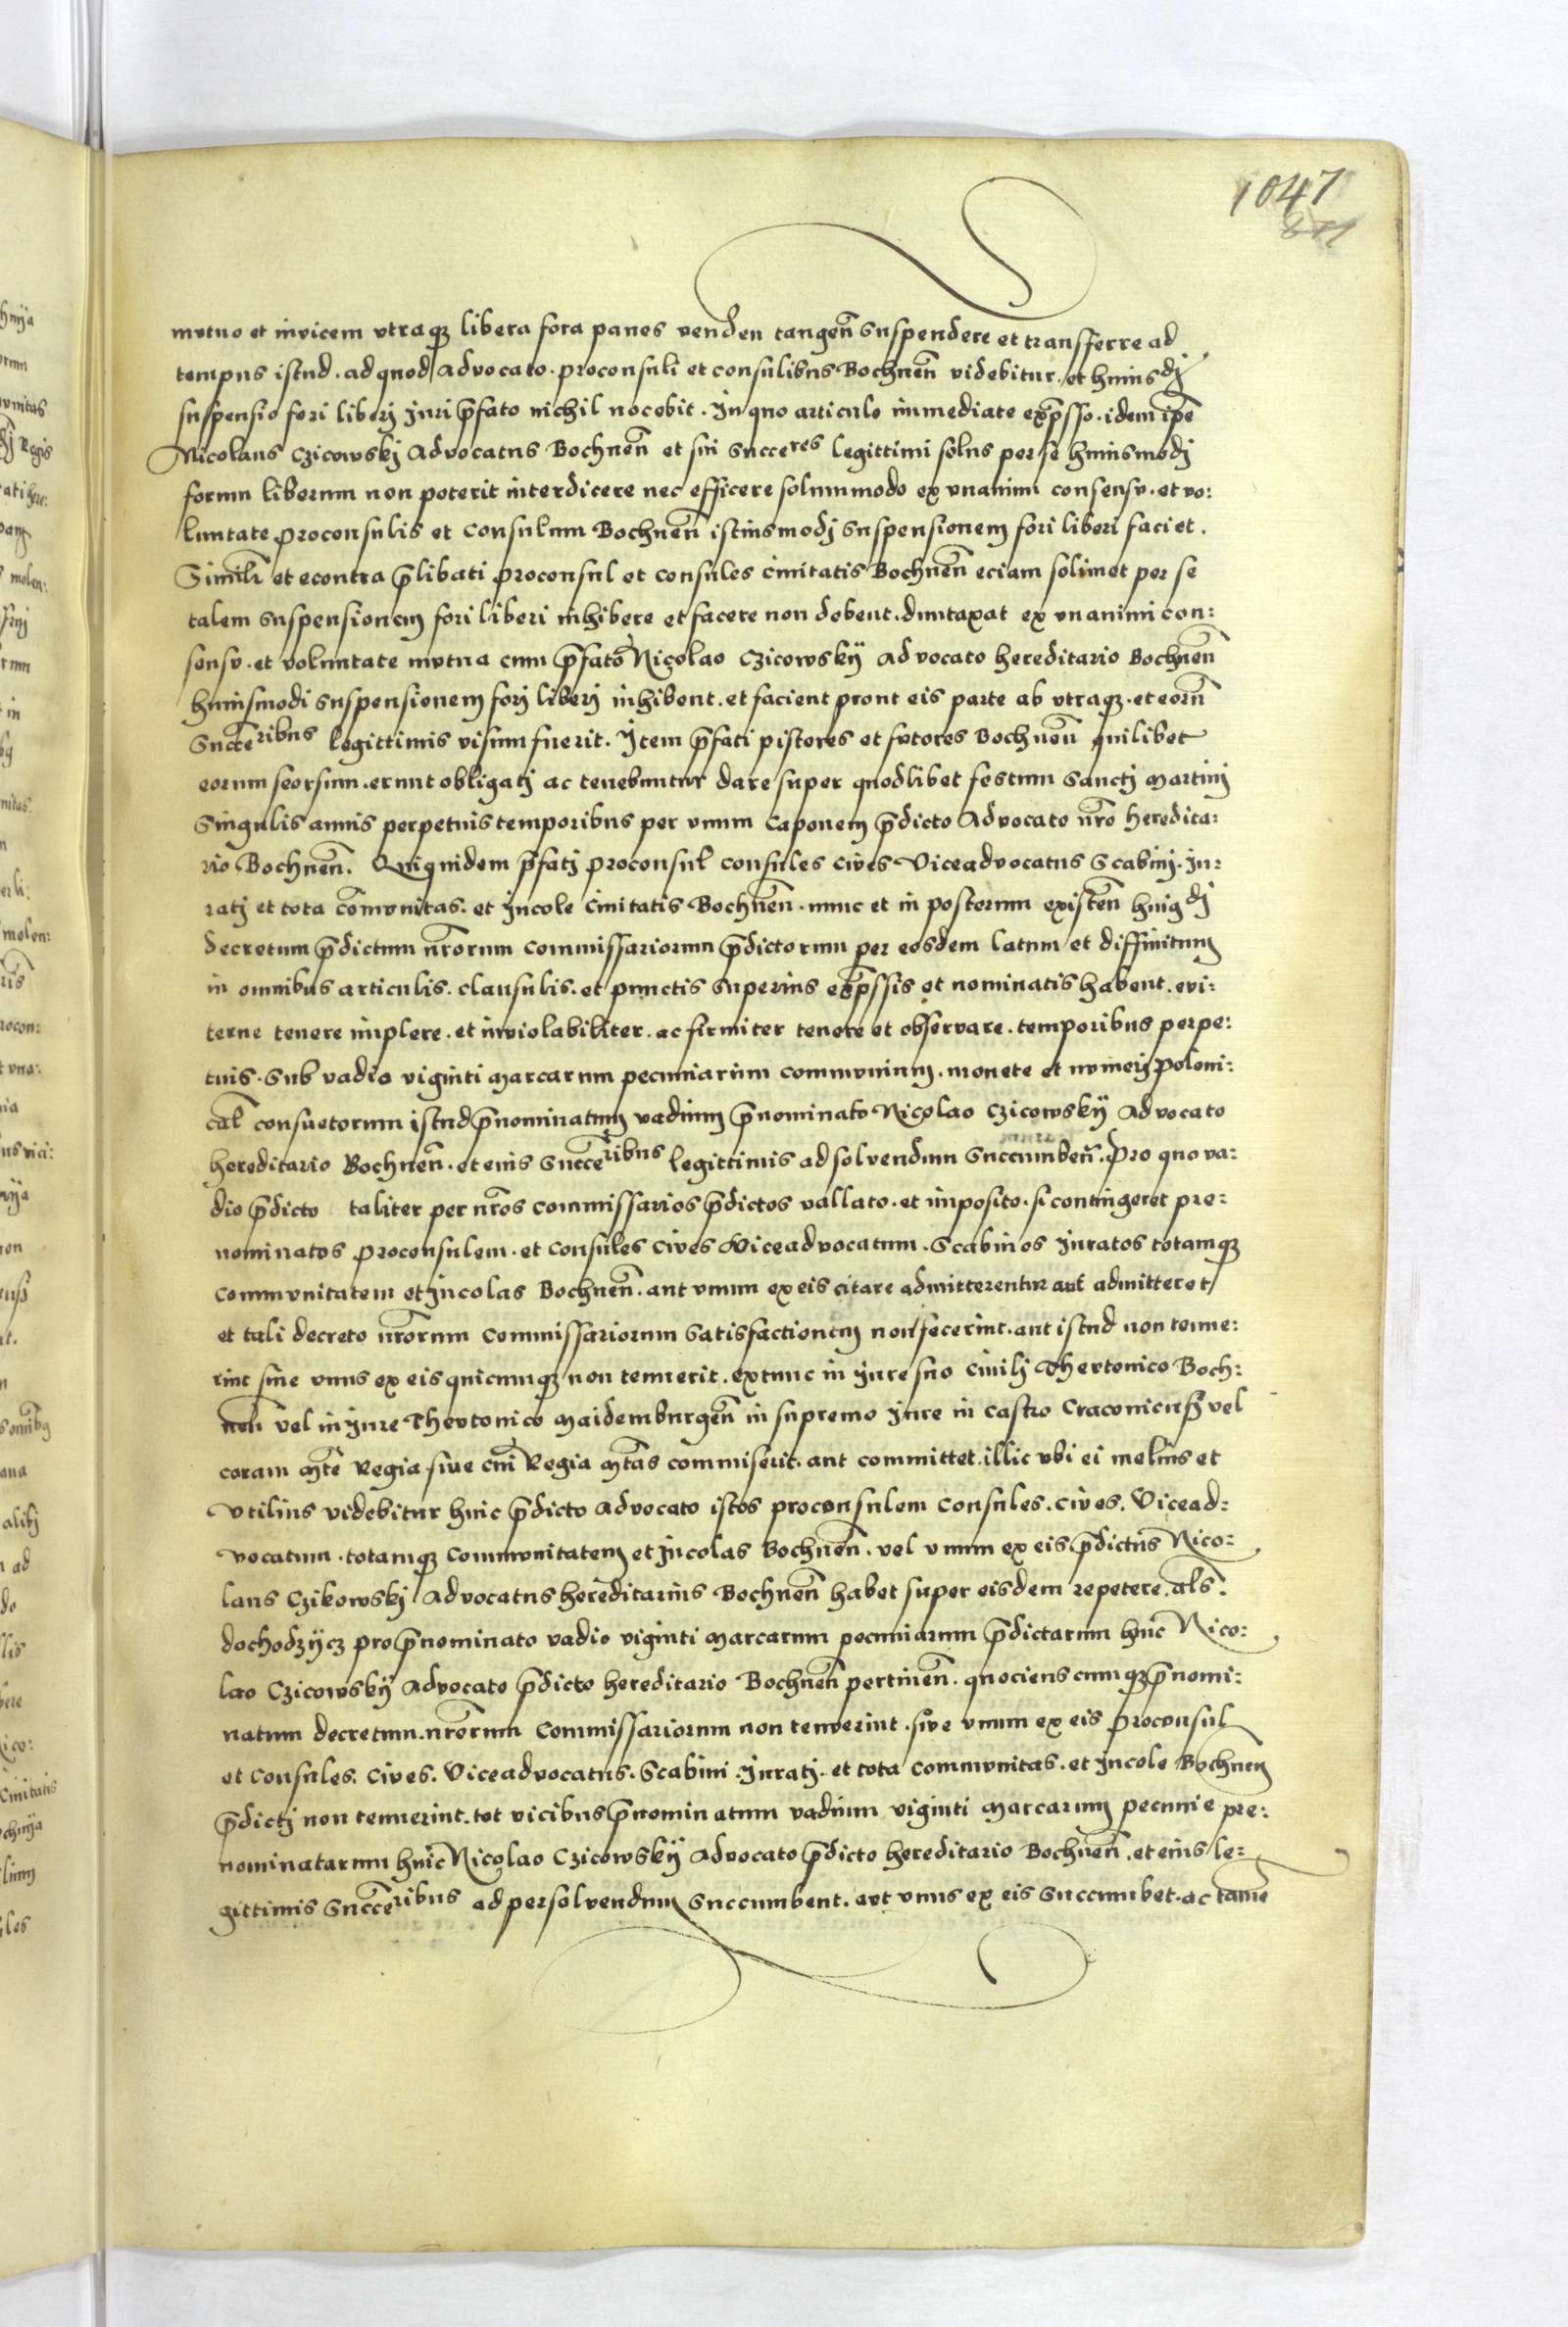 1047
mutuo et invicem vtraqʒ libera fora panes venden tangen̄ suspendere et transferre ad
tempus istud. ad quod Advocato. proconsuli et consulibus Bochnen̄ videbitur. et huiusdj
suspensio fori liberj Juri p̄fato nichil nocebit. In quo articulo immediate exp̄sso. idem ip̄e
Nicolaus Czicowskj Advocatus Bochnen̄ et sui succeres legittimi solus per se huiusmodj
forum liberum non poterit interdicere nec efficere solummodo ex vnanimi consensv. et vo:
luntate proconsulis et consulum Bochnen̄ istiusmodj suspensionem fori liberi faciet.
Similr̄ et econtra p̄libati proconsul et consules Ciuitatis Bochnen̄ eciam solimet per se
talem suspensionem fori liberi inhibere et facere non debent. dumtaxat ex vnanimi con:
sensv. et voluntate mutua cum p̄fato Nicolao Czicowskÿ Advocato hereditario Bochnen̄
huiusmodi suspensionem forj liberj inhibent. et facient prout eis parte ab vtraqʒ. et eorū
Succeribus legittimis visum fuerit. Item p̄fati pistores et sutores Bochnen̄ quilibet
eorum seorsum. erunt obligatj ac tenebuntur dare super quodlibet festum Sanctj Martinj
Singulis annis perpetuis temporibus per vnum caponem p̄dicto Advocato nr̄o heredita:
rio Bochnen̄. Quiquidem p̄fatj proconsul consules cives Viceadvocatus Scabinj. Ju:
ratj et tota cōmvnitas. et Jncole Ciuitatis Bochnen̄. nunc et in posterum existen̄ huigdj
decretum p̄dictum nr̄orum commissariorum p̄dictorum per eosdem latum et diffinitum
in omnibus articulis. clausulis. et punctis superius exp̄ssis et nominatis habent. evi:
terne tenere implere. et inviolabiliter. ac firmiter tenere et observare. temporibus perpe:
tuis. Sub vadio viginti Marcarum pecuniarum commvnium. monete et nvmerj Poloni:
cal̄ consuetorum istud p̄nominatum vadium p̄nominato Nicolao Czicowskÿ Advocato
hereditario Bochnen̄. et eius Succeribus legittimis ad solvendum Succumben̄. Pro quo va:
dio p̄dicto taliter per nr̄os commissarios p̄dictos vallato. et imposito. si contingeret pre:
nominatos proconsulem. et consules Cives Viceadvocatum. Scabinos Juratos totamqʒ
commvnitatem et Jncolas Bochnen̄. aut vnum ex eis citare admitterentur aut admitteret
et tali decreto nr̄orum commissariorum satisfactionem non fecerint. aut istud non tenue:
rint sive vnus ex eis quicumqʒ non tenuerit. extunc in Jure suo Ciuilj Thevtonico Boch:
nen̄ vel in Jure Thevtonico Maidemburgen̄ in supremo Jure in Castro Cracouiensj vel
coram Mt̄e Regia siue cui Regia Mt̄as commiserit. aut committet. illic vbi ei melius et
vtilius videbitur huic p̄dicto Advocato istos proconsulem consules. cives. Vicead:
vocatum. totamqʒ commvnitatem et Jncolas Bochnen̄. vel vnum ex eis p̄dictus Nico:
laus Czikowskj Advocatus hereditarius Bochnen̄ habet super eisdem repetere. al̄s.
dochodzÿcz pro p̄nominato vadio viginti Marcarum pecuniarum p̄dictarum huic Nico:
lao Czicowskÿ Advocato p̄dicto hereditario Bochnen̄ pertinen̄. quociens cumqʒ p̄nomi:
natum decretum. nr̄orum commissariorum non tenverint. sive vnum ex eis proconsul
et consules. Cives. Viceadvocatus. Scabini. Juratj. et tota commvnitas. et Jncole Bochnen
p̄dictj non tenuerint. tot vicibus p̄nominatum vadium viginti Marcarum pecunie pre:
nominatarum huic Nicolao Czicowskÿ Advocato p̄dicto hereditario Bochnen̄. et eius le:
gittimis Succeribus ad persolvendum Succumbent. avt vnus ex eis Succumbet. ac tame